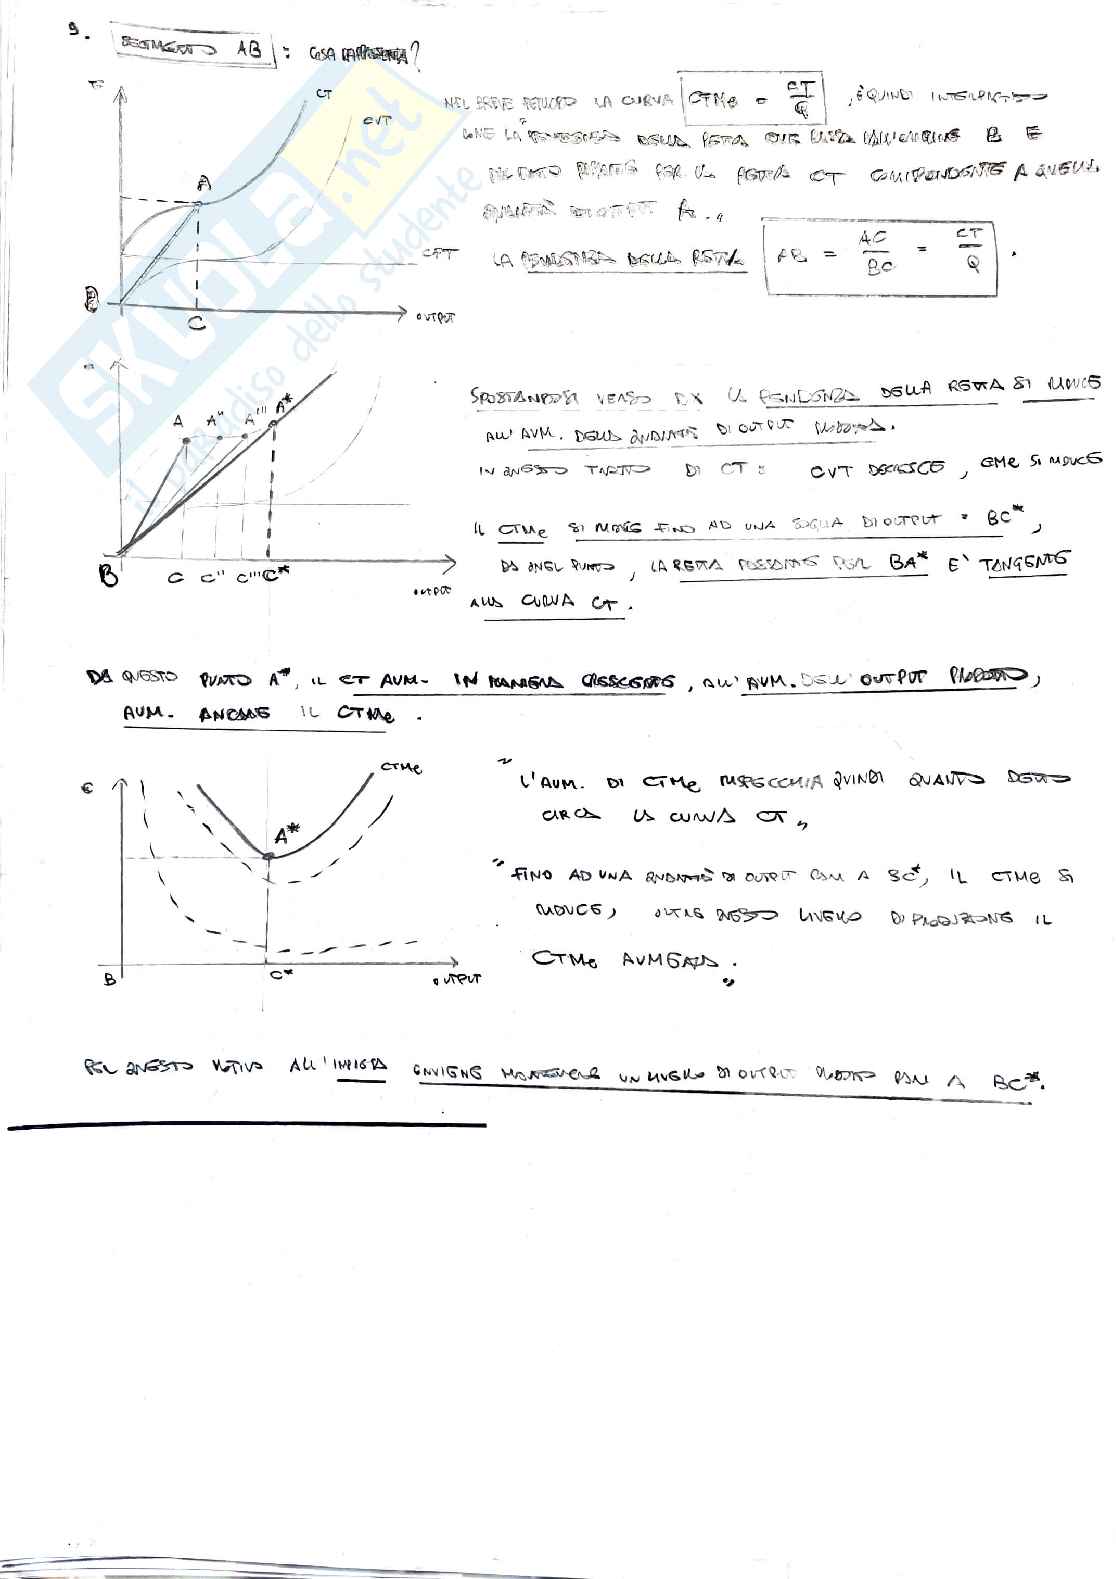 9. SEGMENTO AB : COSA RAPPRESENTA?
CT
CVT
A
CFT
B
C
OUTPUT
NEL BREVE PERIODO LA CURVA CTMe = CT/Q , È QUINDI INTERPRETATO
COME LA "PENDENZA DELLA RETTA CHE PARTE DALL'ORIGINE B E
PASSANTE PER LA RETTA CT CORRISPONDENTE A QUELLA
QUANTITÀ DI OUTPUT A.„
LA PENDENZA DELLA RETTA AB = AC/BC = CT/Q .
A A'' A''' A*
B C C'' C''' C*
OUTPUT
SPOSTANDOSI VERSO DX LA PENDENZA DELLA RETTA SI RIDUCE
ALL'AUM. DELLA QUANTITÀ DI OUTPUT PRODOTTA.
IN QUESTO TRATTO DI CT : CVT DECRESCE, CMe SI RIDUCE
IL CTMe SI RIDUCE FINO AD UNA SOGLIA DI OUTPUT = BC*,
DA QUEL PUNTO, LA RETTA PASSANTE PER BA* E' TANGENTE
ALLA CURVA CT.
DA QUESTO PUNTO A*, IL CT AUM. IN MANIERA CRESCENTE, ALL'AUM. DELL'OUTPUT PRODOTTO,
AUM. ANCHE IL CTMe.
€
CTMe
A*
B
C*
OUTPUT
"L'AUM. DI CTMe RISPECCHIA QUINDI QUANTO DETTO
CIRCA LA CURVA CT„
"FINO AD UNA QUANTITÀ DI OUTPUT PARI A BC*, IL CTMe SI
RIDUCE, OLTRE QUESTO LIVELLO DI PRODUZIONE IL
CTMe AUMENTA.„
PER QUESTO MOTIVO ALL'IMPRESA CONVIENE MANTENERE UN LIVELLO DI OUTPUT PRODOTTO PARI A BC*.
SKUOLA.net
il paradiso dello studente